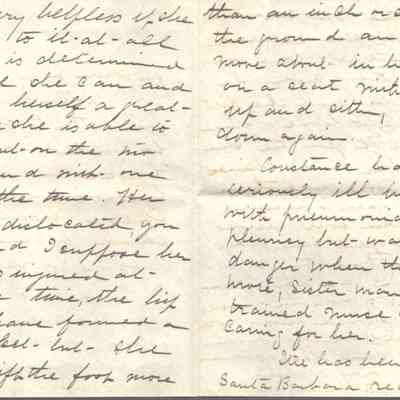 very helpless if she
to it at all
is determined
she can and
herself a great
she is able to
out on the
and with one
the time. Her
dislocated, you
I suppose her
injured at
time, the hip
have formed a
but she
lift the foot more
than an inch or
the ground an
move about in
on a seat
up and sitting
down again.
Constance ha
seriously ill
with pneumonia
pleurisy but wa
danger when th
wrote, Sister
trained nurse
caring for her.
has been
Santa Barbara